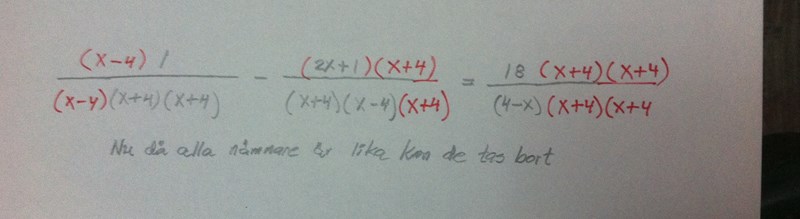 (x-4) 1 / (x-4)(x+4)(x+4) - (2x+1)(x+4) / (x+4)(x-4)(x+4) = 18 (x+4)(x+4) / (4-x)(x+4)(x+4
Nu då alla nämnare är lika kan de tas bort